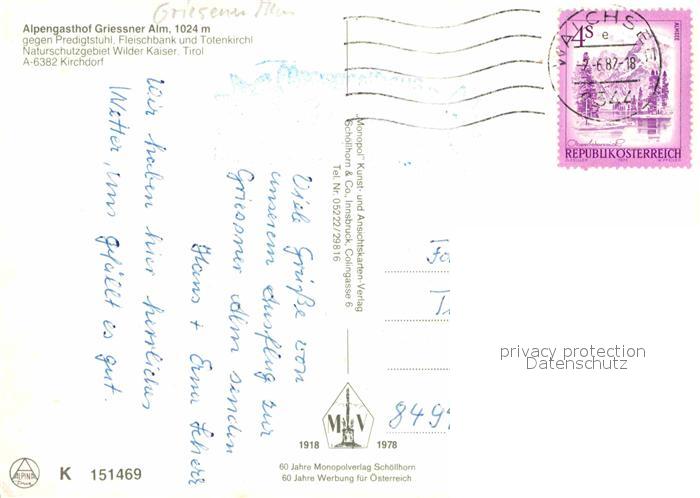 Griesener Alm
Alpengasthof Griessner Alm, 1024 m
gegen Predigtstuhl, Fleischbank und Totenkirchl
Naturschutzgebiet Wilder Kaiser, Tirol
A-6382 Kirchdorf
Viele Grüße von
unserem Ausflug zur
Griessner Alm senden
Hans + Erna Scherr
Wir haben hier herrliches
Wetter, uns gefällt es gut.
"Monopol" Kunst- und Ansichtskarten-Verlag
Schöllhorn & Co., Innsbruck, Colingasse 6
Tel. Nr. 05222/29816
WALCHSEE
-6.82-18
6344
4S
ALMSEE
Oberösterreich
REPUBLIK ÖSTERREICH
849
privacy protection
Datenschutz
M V
1918 1978
60 Jahre Monopolverlag Schöllhorn
60 Jahre Werbung für Österreich
ALPINA
K 151469